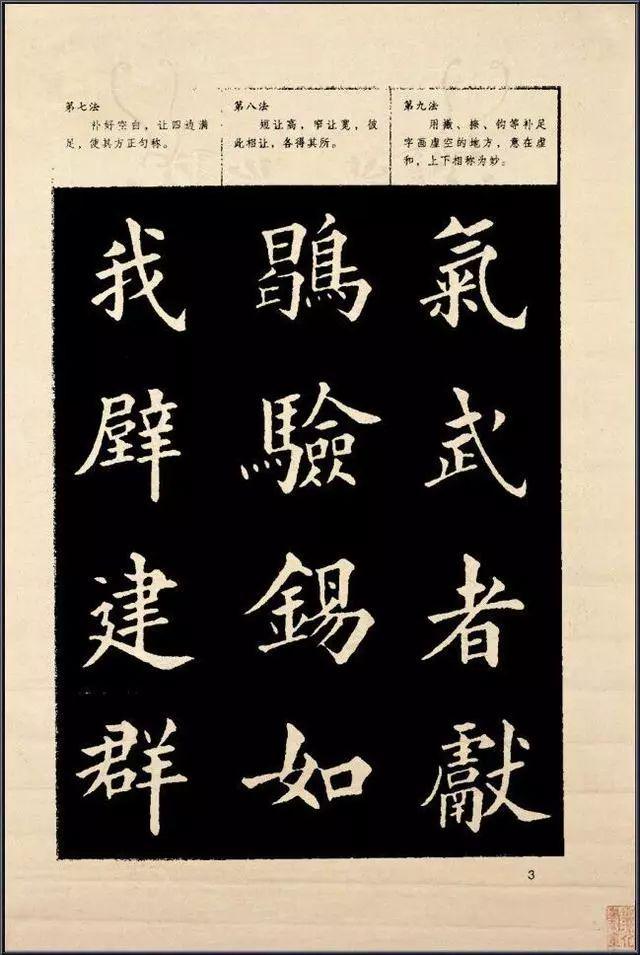 第七法
补好空白，让四边满
足，使其方正匀称。
我
辟
建
群
第八法
短让高，窄让宽，彼
此相让，各得其所。
驗
錫
如
第九法
用撇、捺、钩等补足
字画虚空的地方，意在虚
和，上下相称为妙。
氣
武
者
獻
3